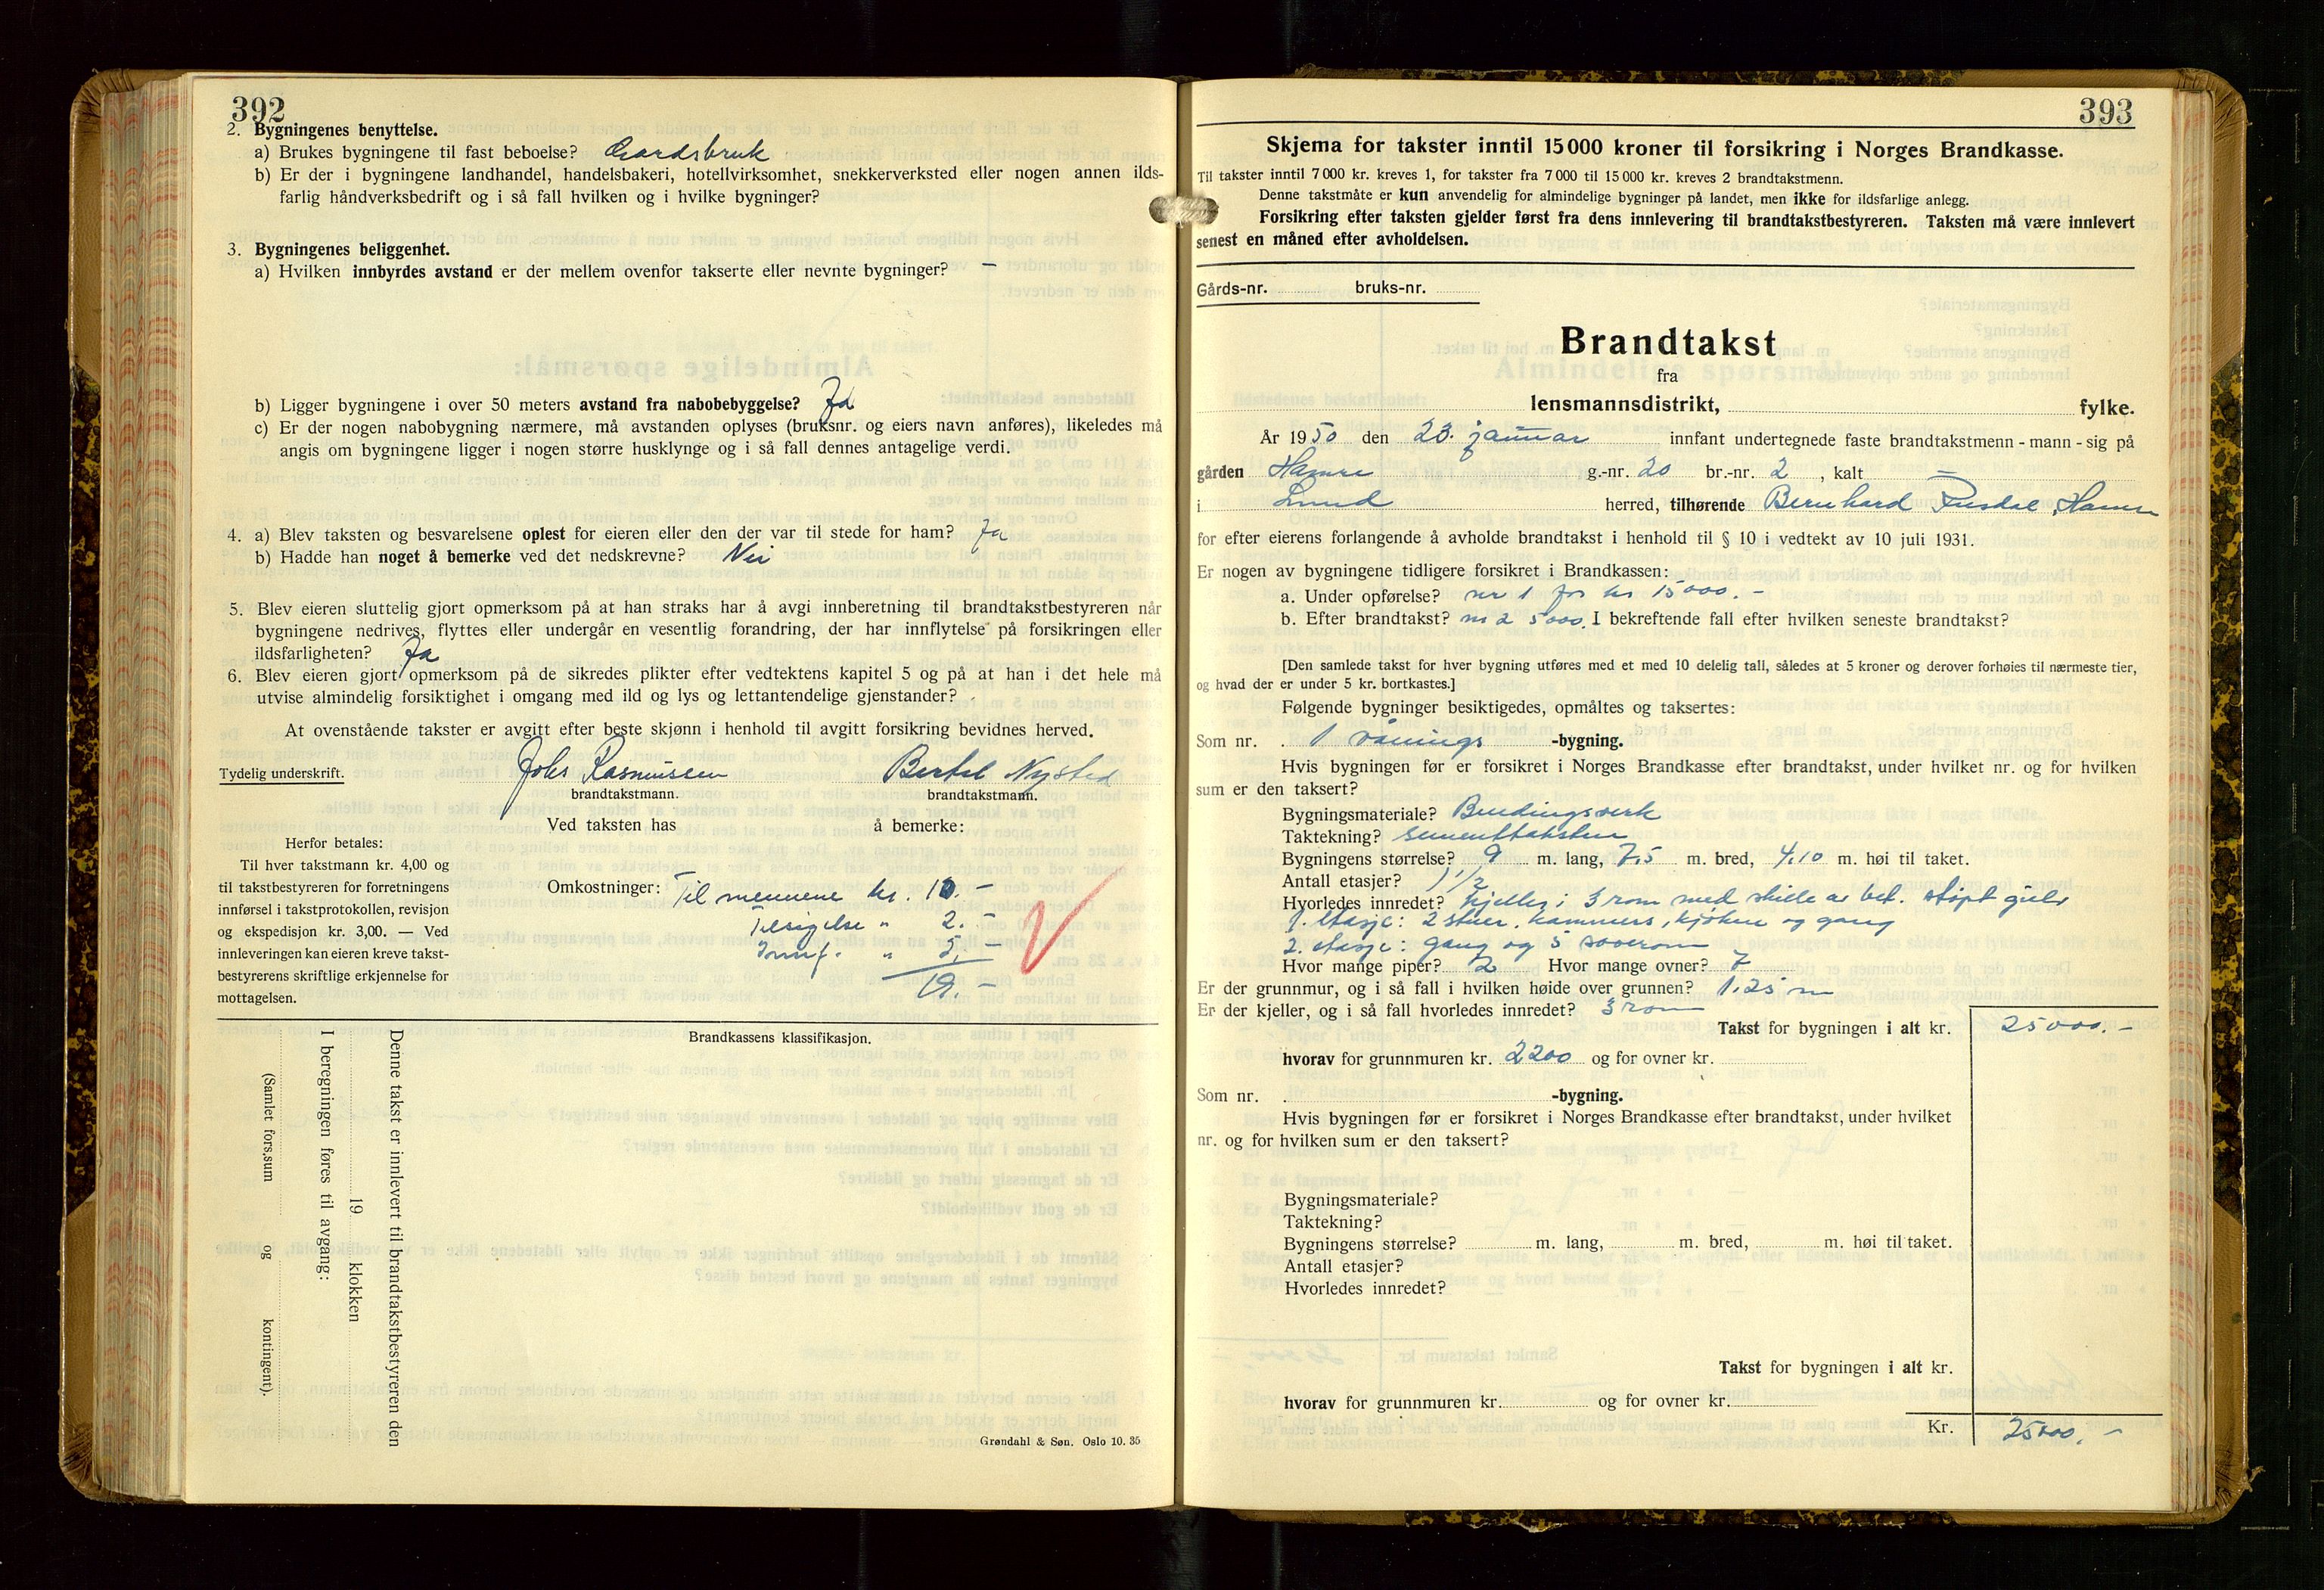 392
2. Bygningenes benyttelse.
a) Brukes bygningene til fast beboelse? Gardsbruk
b) Er der i bygningene landhandel, handelsbakeri, hotellvirksomhet, snekkerverksted eller nogen annen ilds-
farlig håndverksbedrift og i så fall hvilken og i hvilke bygninger?
3. Bygningenes beliggenhet.
a) Hvilken innbyrdes avstand er der mellem ovenfor takserte eller nevnte bygninger? —
b) Ligger bygningene i over 50 meters avstand fra nabobebyggelse? Ja
c) Er der nogen nabobygning nærmere, må avstanden oplyses (bruksnr. og eiers navn anføres), likeledes må
angis om bygningene ligger i nogen større husklynge og i så fall dennes antagelige verdi.
4. a) Blev taksten og besvarelsene oplest for eieren eller den der var til stede for ham? Ja
b) Hadde han noget å bemerke ved det nedskrevne? Nei
5. Blev eieren sluttelig gjort opmerksom på at han straks har å avgi innberetning til brandtakstbestyreren når
bygningene nedrives, flyttes eller undergår en vesentlig forandring, der har innflytelse på forsikringen eller
ildsfarligheten? Ja
6. Blev eieren gjort opmerksom på de sikredes plikter efter vedtektens kapitel 5 og på at han i det hele må
utvise almindelig forsiktighet i omgang med ild og lys og lettantendelige gjenstander?
At ovenstående takster er avgitt efter beste skjønn i henhold til avgitt forsikring bevidnes herved.
Tydelig underskrift. Johs Rasmussen Bertel Nysted
brandtakstmann. brandtakstmann.
Ved taksten has å bemerke:
Herfor betales:
Til hver takstmann kr. 4,00 og
til takstbestyreren for forretningens
innførsel i takstprotokollen, revisjon
og ekspedisjon kr. 3,00. — Ved
innleveringen kan eieren kreve takst-
bestyrerens skriftlige erkjennelse for
mottagelsen.
Omkostninger: Til mennene kr. 10. —
Tilsigelse " 2. —
Innf. " 5. —
19. —
Brandkassens klassifikasjon.
Denne takst er innlevert til brandtakstbestyreren den
19 klokken
I beregningen føres til avgang:
(Samlet fors.sum og kontingent).
Grøndahl & Søn. Oslo 10. 35
393
Skjema for takster inntil 15 000 kroner til forsikring i Norges Brandkasse.
Til takster inntil 7 000 kr. kreves 1, for takster fra 7 000 til 15 000 kr. kreves 2 brandtakstmenn.
Denne takstmåte er kun anvendelig for almindelige bygninger på landet, men ikke for ildsfarlige anlegg.
Forsikring efter taksten gjelder først fra dens innlevering til brandtakstbestyreren. Taksten må være innlevert
senest en måned efter avholdelsen.
Gårds-nr. bruks-nr.
Brandtakst
fra
lensmannsdistrikt, fylke.
År 1950 den 23. januar innfant undertegnede faste brandtakstmenn - mann - sig på
gården Hamre g.-nr. 20 br.-nr. 2, kalt —
i Lund herred, tilhørende Bernhard Hamre
for efter eierens forlangende å avholde brandtakst i henhold til § 10 i vedtekt av 10 juli 1931.
Er nogen av bygningene tidligere forsikret i Brandkassen:
a. Under opførelse? nr 1 for kr 15000. -
b. Efter brandtakst? nr 2 5000. I bekreftende fall efter hvilken seneste brandtakst?
[Den samlede takst for hver bygning utføres med et med 10 delelig tall, således at 5 kroner og derover forhøies til nærmeste tier,
og hvad der er under 5 kr. bortkastes.]
Følgende bygninger besiktigedes, opmåltes og taksertes:
Som nr. 1 vånings -bygning.
Hvis bygningen før er forsikret i Norges Brandkasse efter brandtakst, under hvilket nr. og for hvilken
sum er den taksert?
Bygningsmateriale? Bindingsverk
Taktekning? sementtaksten
Bygningens størrelse? 9 m. lang, 7,5 m. bred, 4,10 m. høi til taket.
Antall etasjer? 1 1/2
Hvorledes innredet? Kjeller i 3 rom med skille av bet. støpt gulv
1. Etasje: 2 stuer, kammers, kjøken og gang
2. etasje: gang og 5 soverom
Hvor mange piper? 2 Hvor mange ovner? 7
Er der grunnmur, og i så fall i hvilken høide over grunnen? 1,25 m
Er der kjeller, og i så fall hvorledes innredet? 3 rom
Takst for bygningen i alt kr. 25000. —
hvorav for grunnmuren kr. 2200 og for ovner kr.
Som nr. -bygning.
Hvis bygningen før er forsikret i Norges Brandkasse efter brandtakst, under hvilket
nr. og for hvilken sum er den taksert?
Bygningsmateriale?
Taktekning?
Bygningens størrelse? m. lang, m. bred, m. høi til taket.
Antall etasjer?
Hvorledes innredet?
Takst for bygningen i alt kr.
hvorav for grunnmuren kr. og for ovner kr.
Kr. 25000. —